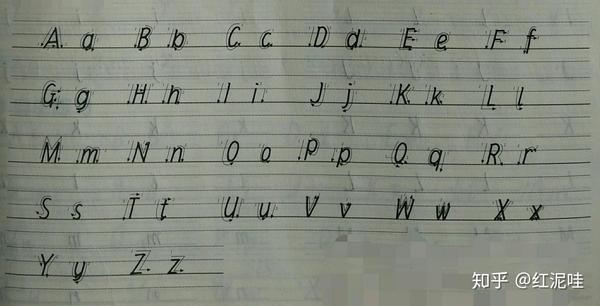 A a B b C c D d E e F f
G g H h I i J j K k L l
M m N n O o P p Q q R r
S s T t U u V v W w X x
Y y Z z
知乎 @红泥哇